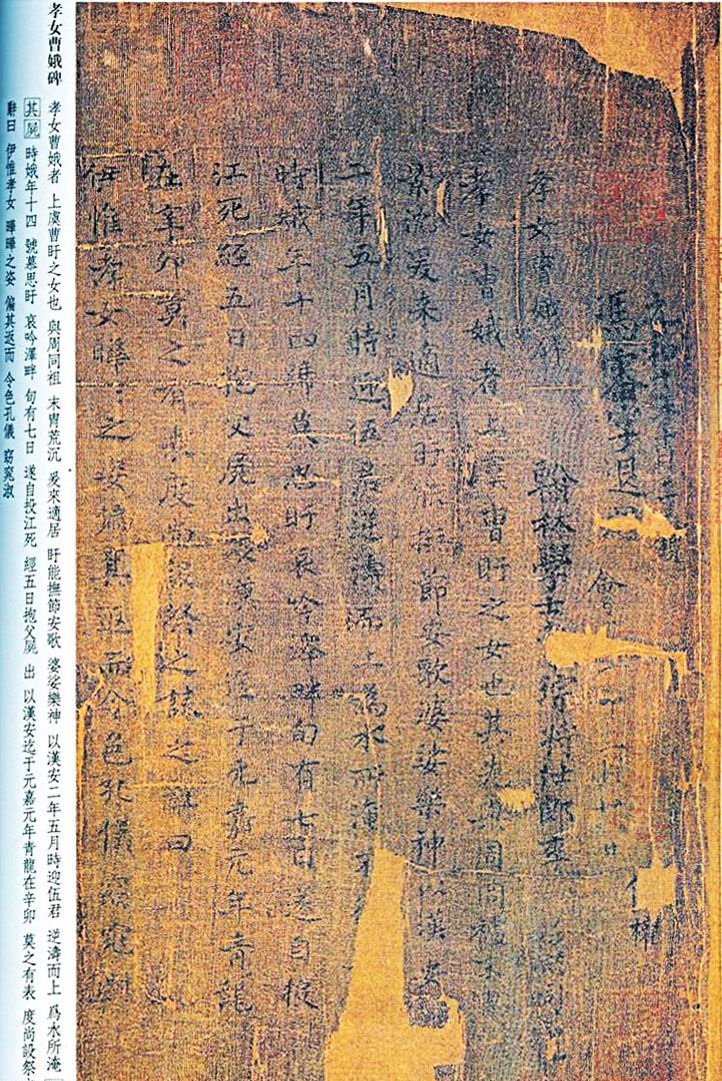 翰林學士
孝女曹娥碑
孝女曹娥者上虞曹盱之女也其先與周同祖末
荒沉爰來適居盱能撫節安歌婆娑樂神以漢安
二年五月時迎伍君逆濤而上為水所淹不
時娥年十四號慕思盱哀吟澤畔旬有七日遂自投
江死經五日抱父屍出以漢安迄于元嘉元年青龍
在辛卯莫之有表度尚設祭之誄之辭曰
伊惟孝女曄〻之姿偏其返而令色孔儀窈窕淑
孝女曹娥碑
孝女曹娥者 上虞曹盱之女也 與周同祖 末胄荒沉 爰來適居 盱能撫節安歌 婆娑樂神 以漢安二年五月時迎伍君 逆濤而上 爲水所淹
其屍 時娥年十四 號慕思盱 哀吟澤畔 旬有七日 遂自投江死 經五日抱父屍出 以漢安迄于元嘉元年青龍在辛卯 莫之有表 度尚設祭
辭曰 伊惟孝女 曄曄之姿 偏其返而 令色孔儀 窈窕淑